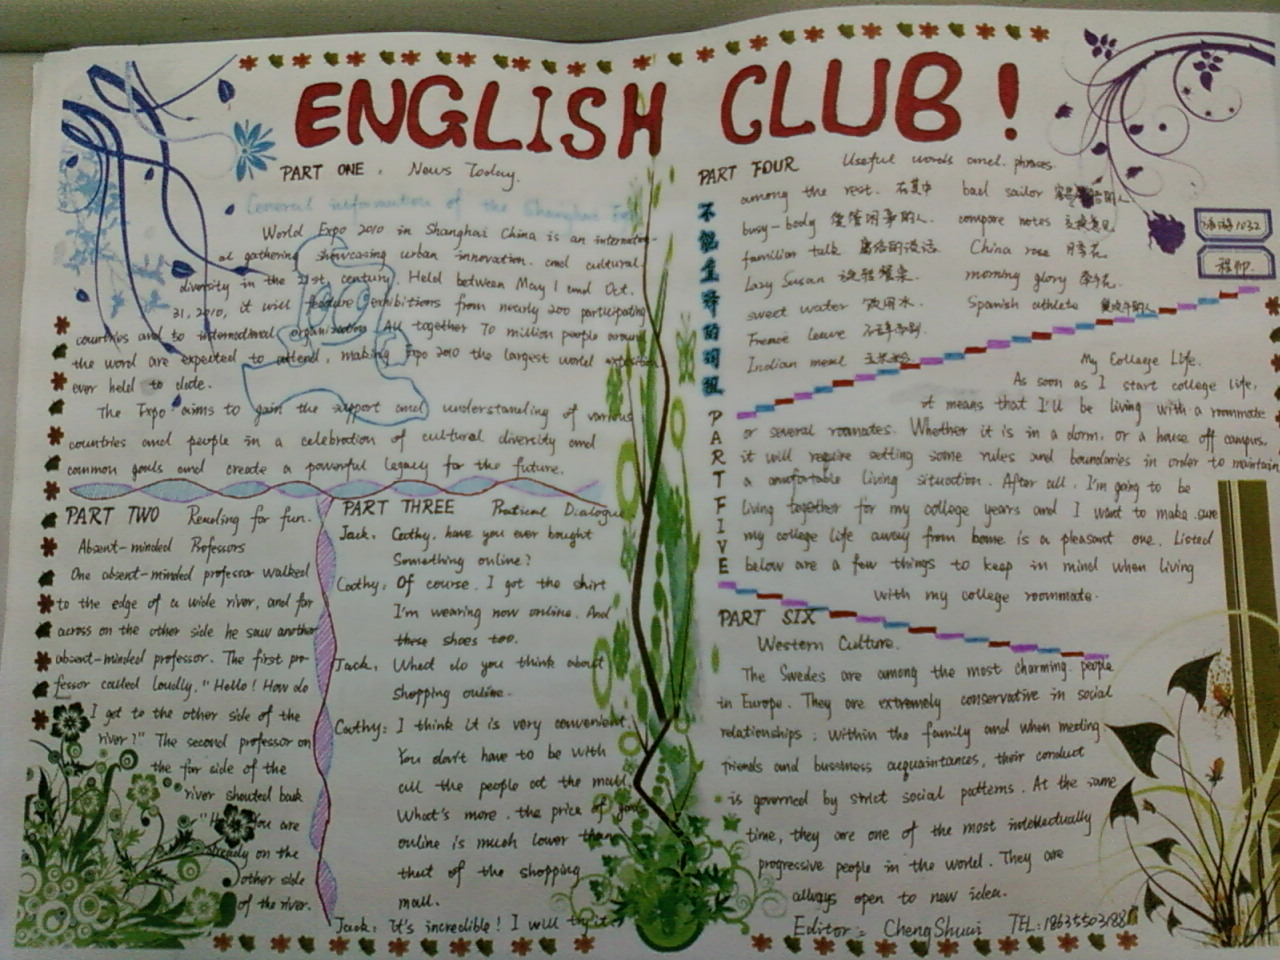 ENGLISH CLUB!
PART ONE. News Today.
General information of the Shanghai
World Expo 2010 in Shanghai China is an internation-
al gathering showcasing urban innovation and cultural
diversity in the 21st century. Held between May 1 and Oct.
31, 2010, it will feature exhibitions from nearly 200 participating
countries and to international organizations All together 70 million people around
the word are expected to attend, making Expo 2010 the largest world exposition
ever held to date.
The Expo aims to gain the support and understanding of various
countries and people in a celebration of cultural diversity and
common goals and create a powerful legacy for the future.
PART TWO Reading for fun.
Absent-minded Professors
One absent-minded professor walked
to the edge of a wide river, and far
across on the other side he saw another
absent-minded professor. The first pro-
fessor called loudly, "Hello! How do
I get to the other side of the
river?" The second professor on
the far side of the
river shouted back
You are
already on the
other side
of the river.
PART THREE Pratical Dialogue
Jack: Cathy, have you ever bought
Something online?
Cathy: Of course. I got the shirt
I'm wearing now online. And
these shoes too.
Jack: What do you think about
shopping online.
Cathy: I think it is very convenient
You don't have to be with
all the people at the mall.
What's more, the price of goods
online is much lower than
that of the shopping
mall.
Jack: It's incredible! I will try it.
PART FOUR Useful words and phrases.
不能直译的词组
among the rest. 在其中 bad sailor
busy-body 爱管闲事的人. compare notes 交换意见
familiar talk 庸俗的谈话 China rose 月季花
Lazy Susan morning glory 牵牛花
sweet water 饮用水. Spanish athlete 的人
French leave 不辞而别.
Indian meal 玉米粉
PART FIVE
My College Life.
As soon as I start college life,
it means that I'll be living with a roommate
or several roomates. Whether it is in a dorm, or a house off campus,
it will require setting some rules and boundaries in order to maintain
a comfortable living situation. After all, I'm going to be
living together for my college years and I want to make sure
my college life away from home is a pleasant one. Listed
below are a few things to keep in mind when living
with my college roommate.
PART SIX
Western Culture.
The Swedes are among the most charming people
in Europe. They are extremely conservative in social
relationships; within the family and when meeting
friends and bussiness acquaintances, their conduct
is governed by strict social patterns. At the same
time, they are one of the most intellectually
progressive people in the world. They are
always open to new idea.
Editor: ChengShuai TEL: 18635503188